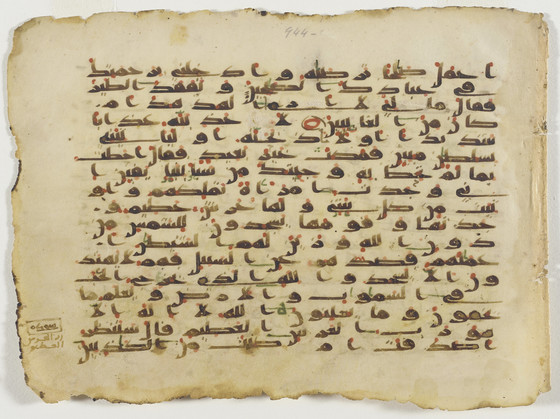 944-
اعمل صلحا ترضه وادخلني برحمتك
في عبادك الصلحين وتفقد الطير
فقال ما لي لا ارى الهدهد ام
كان من الغائبين لا عذبنه عذابا
شديدا او لا اذبحنه او لياتيني
بسلطن مبين فمكث غير بعيد فقال احطت
بما لم تحط به وجئتك من سبا بنبا يقين ا
ني وجدت امراة تملكهم واو
تيت من كل شي ولها عرش عظيم و
جدتها وقومها يسجدون للشمس من
دون الله وزين لهم الشيطن ا
عملهم فصدهم عن السبيل فهم لا يهتد
ون الا يسجدوا لله الذي يخرج الخب
في السموت والارض ويعلم ما
تخفون وما تعلنون الله لا اله الا
هو رب العرش العظيم قال سننظر
اصدقت ام كنت من الكذبين